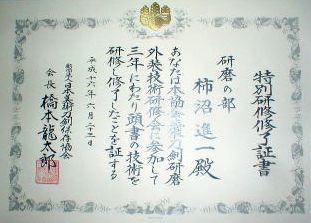 特別研修修了証書
研磨の部
柿沼進一殿
あなたは本協会主催刀剣研磨
外装技術研修会に参加して
三年にわたり頭書の技術を
研修し修了したことを証する
平成十六年六月二十三日
財団法人日本美術刀剣保存協会
会長 橋本龍太郎